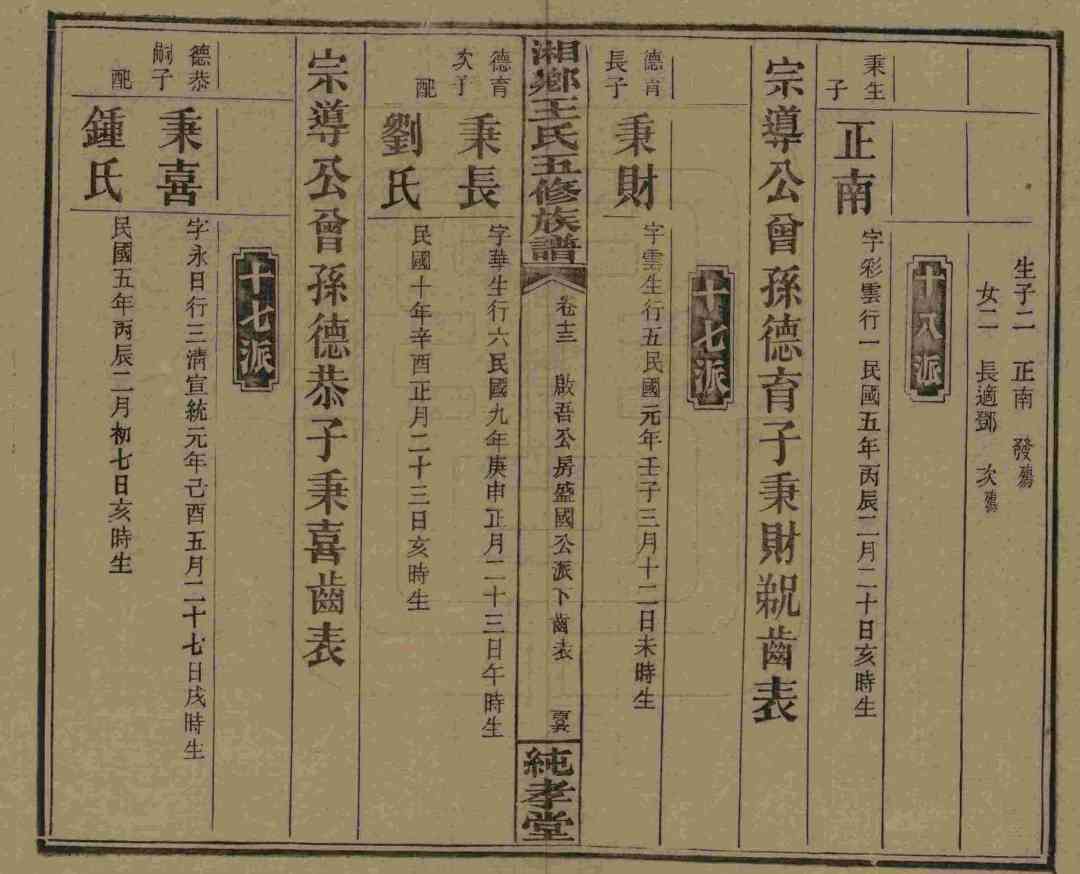 生子二　正南　發殤
女二　長適鄧　次殤
十八派
秉生子
正南
字彩雲行一民國五年丙辰二月二十日亥時生
宗導公曾孫德育子秉財覜齒表
十七派
德育長子
秉財
字雲生行五民國元年壬子三月十二日未時生
湘鄉王氏五修族譜
卷十三　啟吾公房盛國公派下齒表
純孝堂
德育次子
秉長
字華生行六民國九年庚申正月二十三日午時生
配
劉氏
民國十年辛酉正月二十三日亥時生
宗導公曾孫德恭子秉喜齒表
十七派
德恭嗣子
秉喜
字永日行三清宣統元年己酉五月二十七日戌時生
配
鍾氏
民國五年丙辰二月初七日亥時生